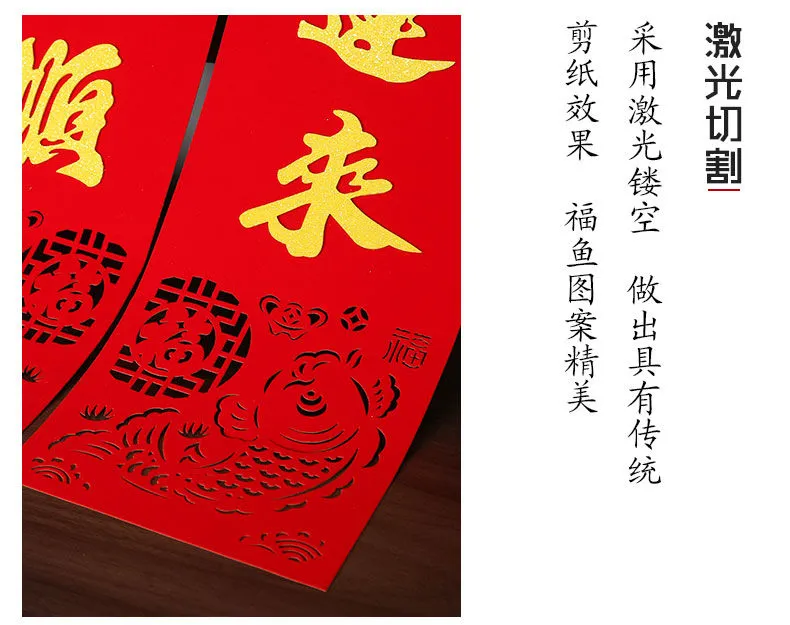 激光切割
采用激光镂空 做出具有传统
剪纸效果 福鱼图案精美
来
順
福
福
福